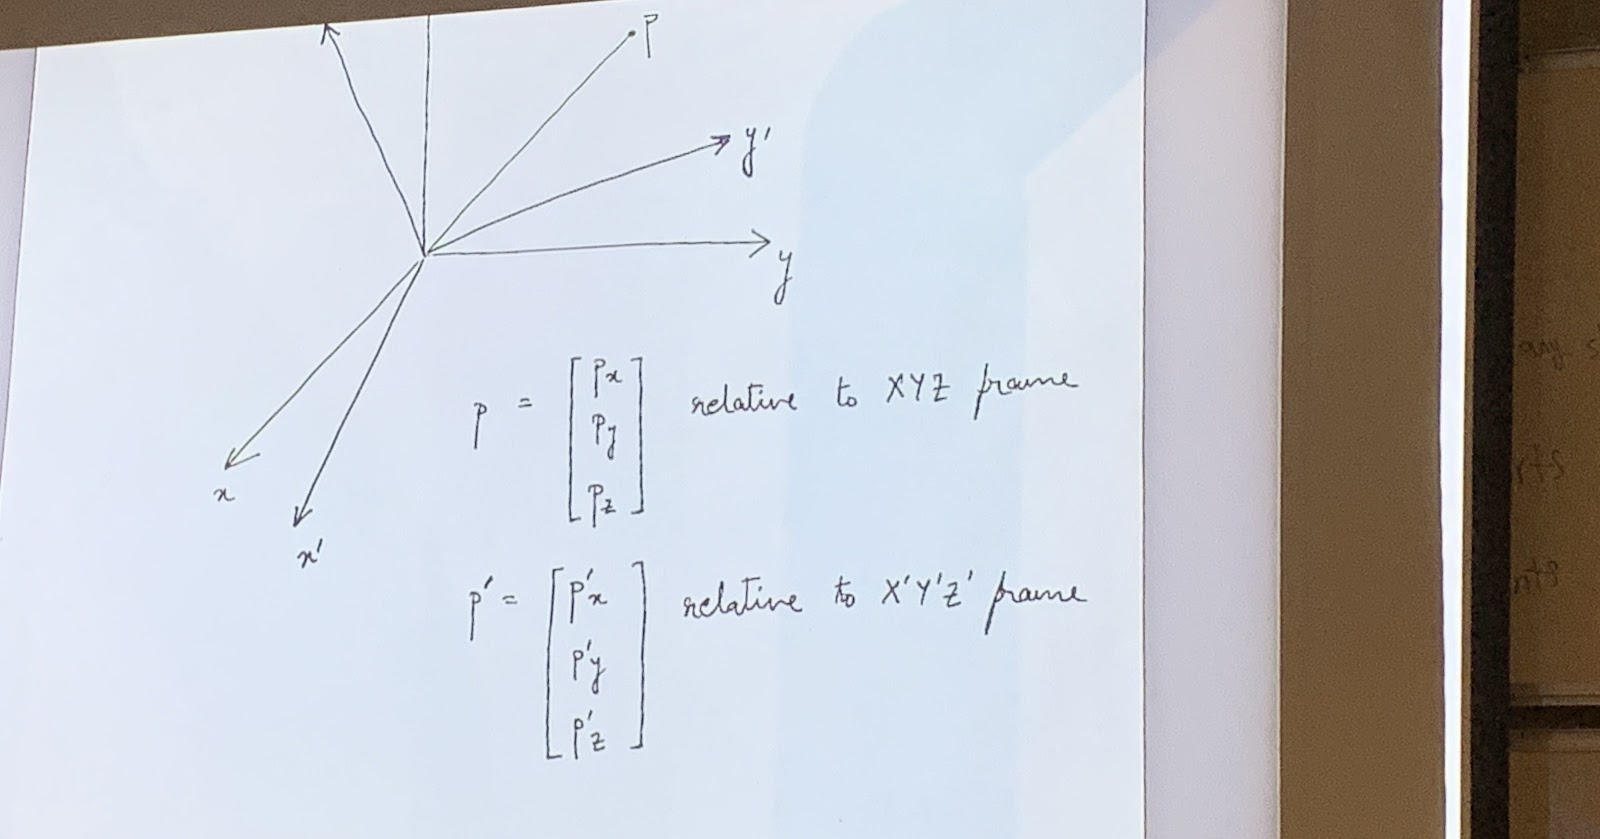 P
y'
y
x
x'
p = [ Px Py Pz ] relative to XYZ frame
p' = [ P'x P'y P'z ] relative to X'Y'Z' frame
any